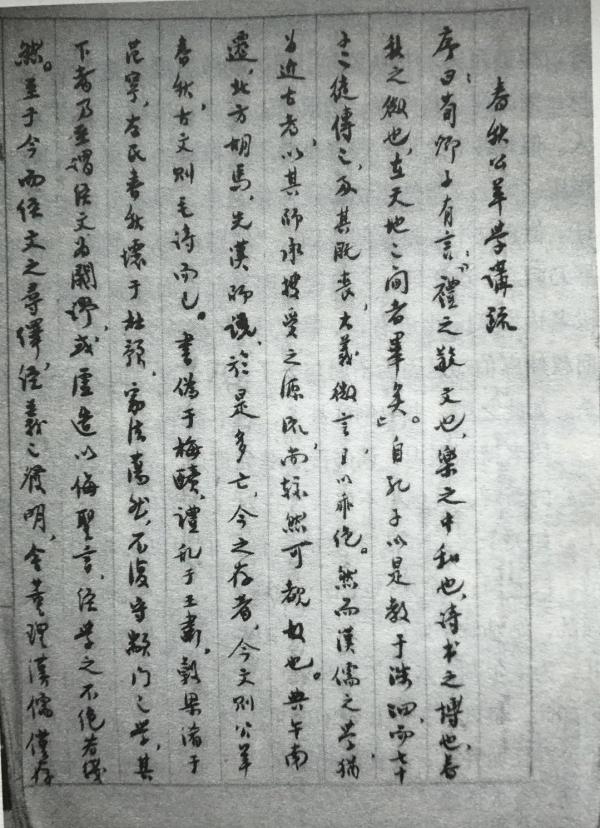 春秋公羊學講疏
序曰：荀卿子有言：「禮之敬文也，樂之中和也，詩書之博也，春
秋之微也，在天地之間者畢矣。」自孔子以是教于洙泗，而七十
子之徒傳之，及其既喪，大義微言，日以乖絕。然而漢儒之學，猶
為近古者，以其師承授受之源流，尚較然可覩故也。典午南
遷，北方胡馬，先漢師說，於是多亡，今之存者，今文則公羊
春秋，古文則毛詩而已。書偽于梅賾，禮亂于王肅，穀梁淆于
范寧，左氏春秋壞于杜預，家法蕩然，不復守顓門之學，其
下者乃至謂經文為闕謬，或虛造以侮聖言，經學之不絕若綫
然。至于今而經文之尋繹，經義之發明，舍董理漢儒僅存